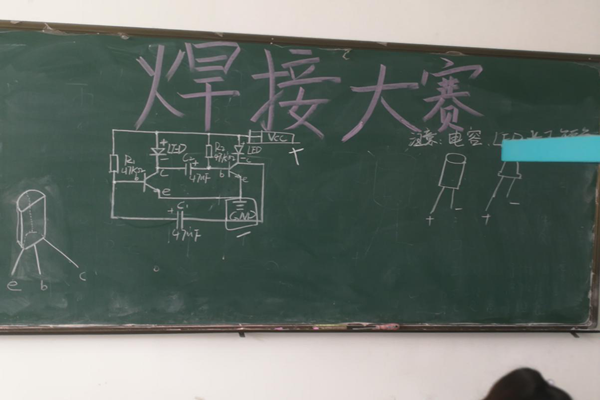 焊接大赛
注意:电容.LED
VCC
LED
R2
47KΩ
LED
R1
47KΩ
C2
47μF
c
b
e
b
c
e
C1
47μF
GND
+
-
e
b
c
+
-
+
-